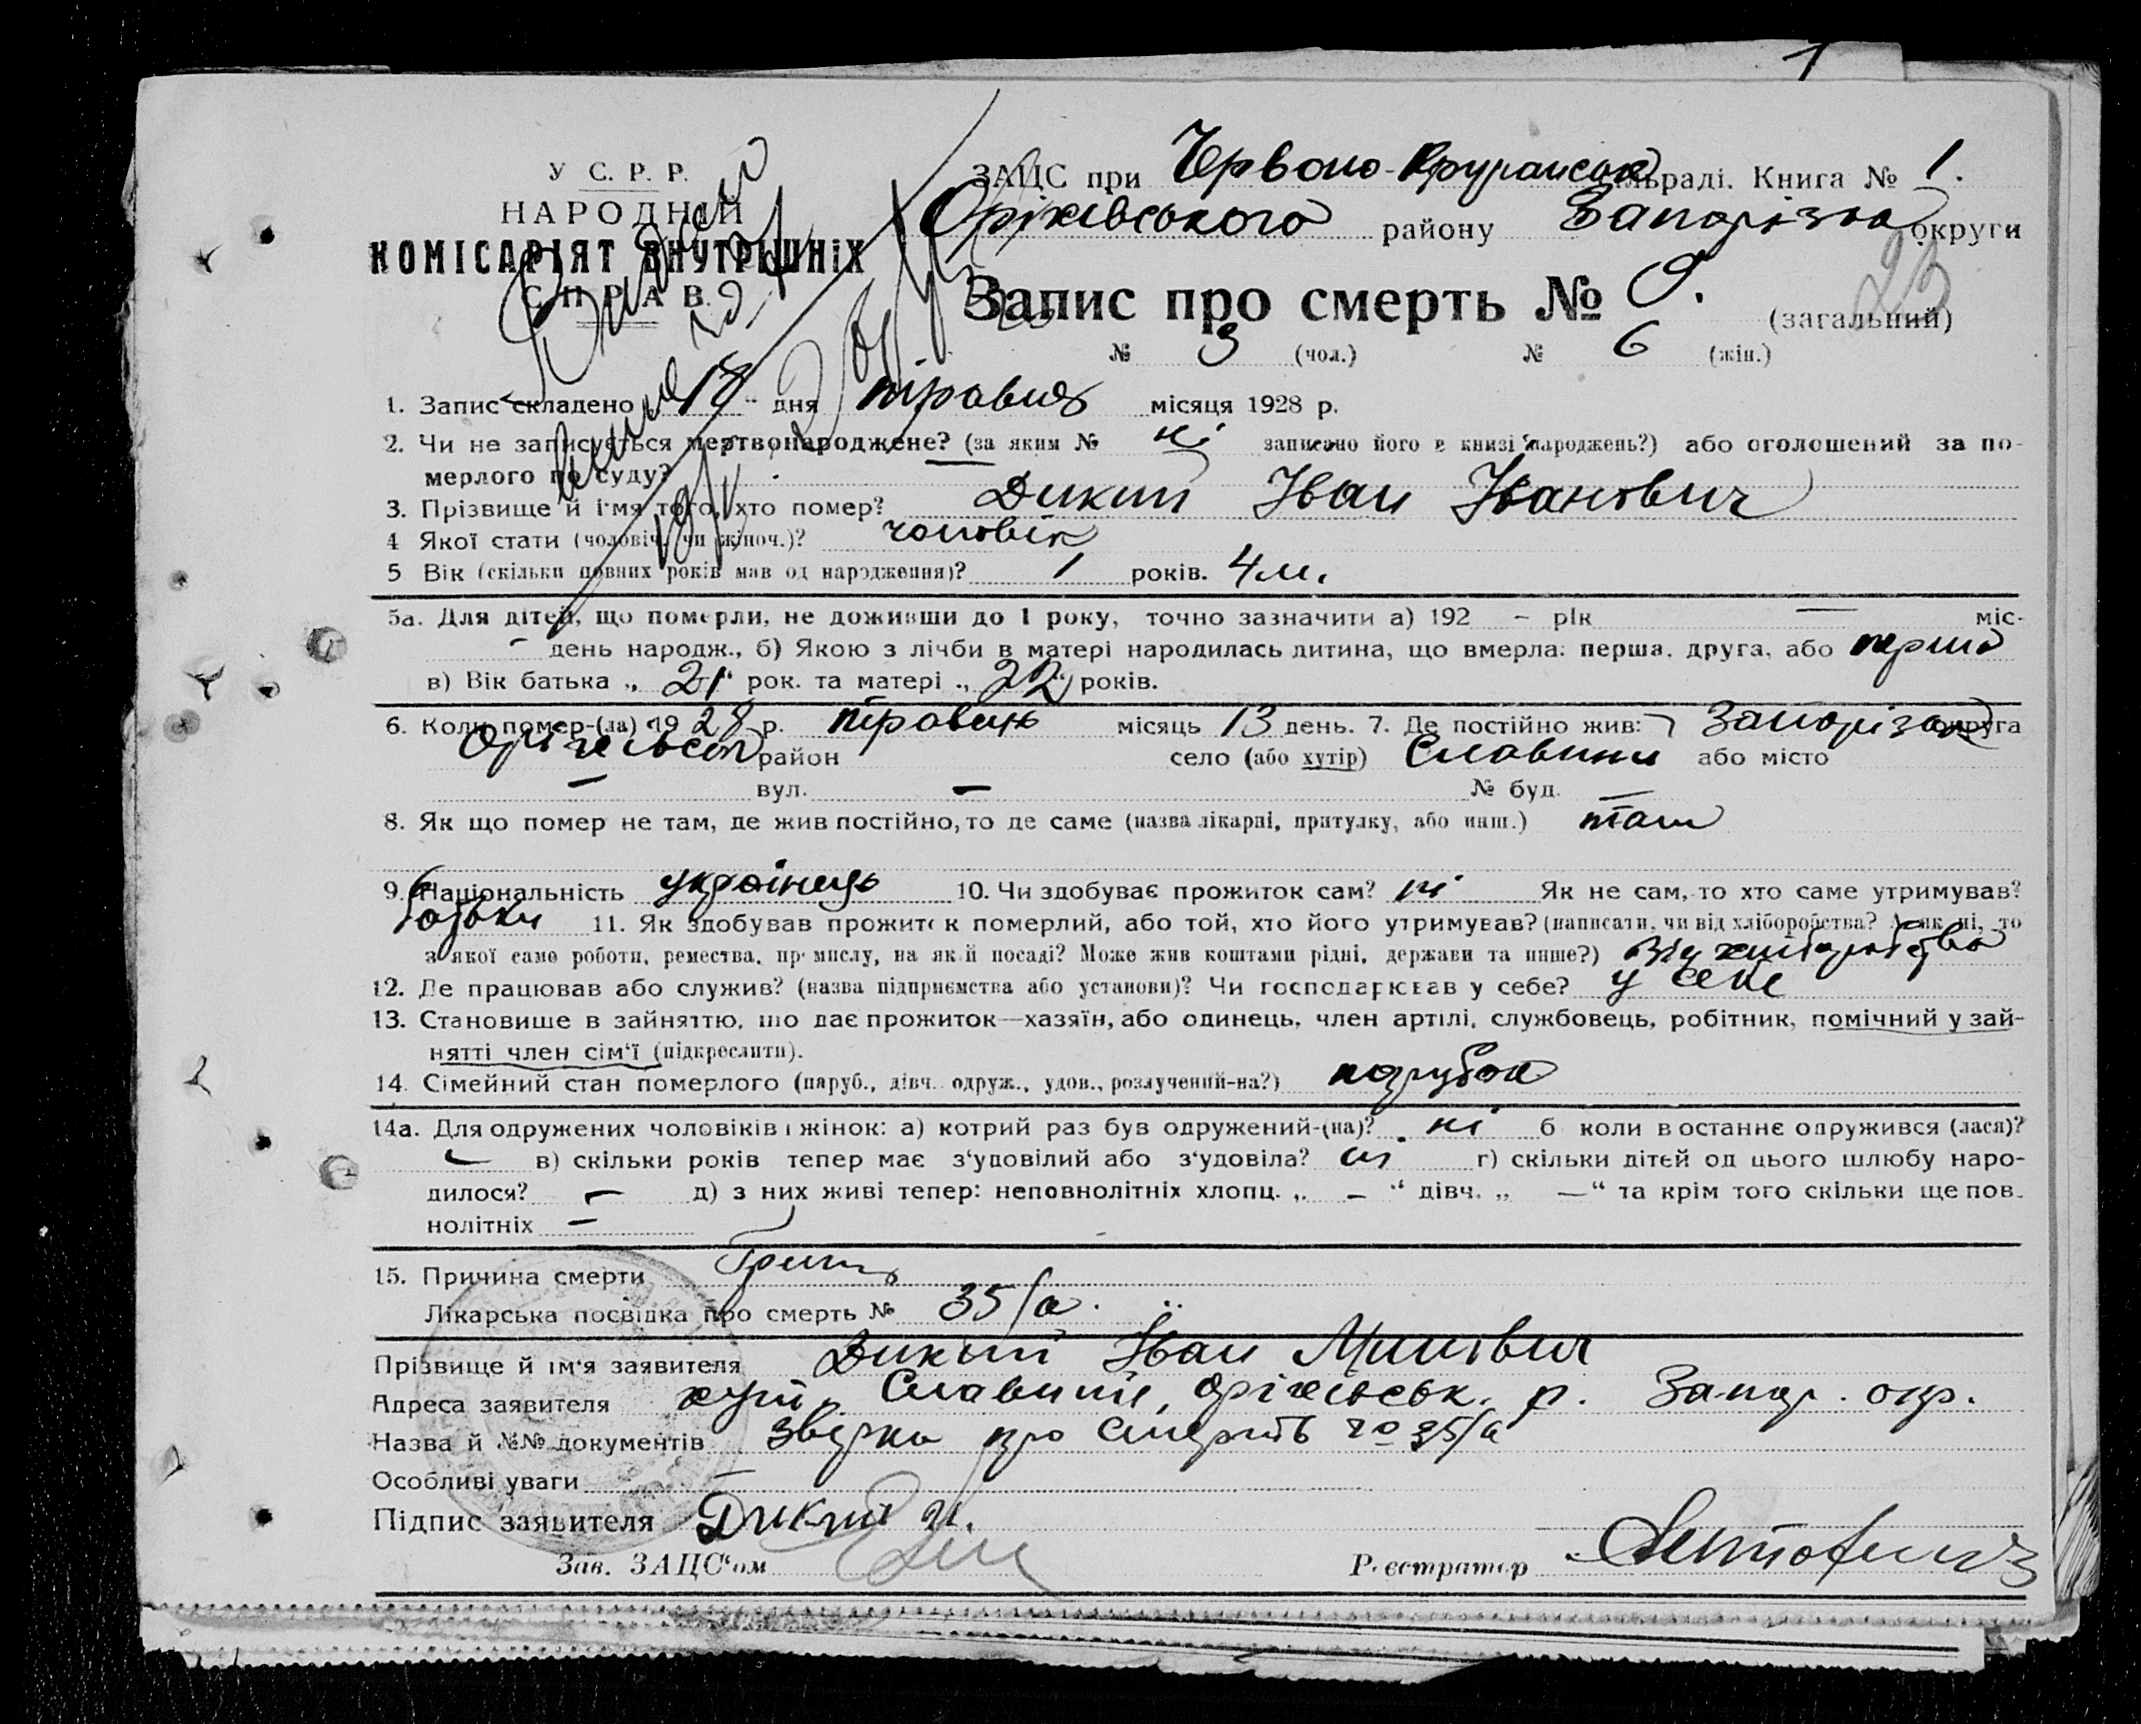 1
У С. Р. Р.
НАРОДНІЙ
КОМІСАРІЯТ ВНУТРІШНІХ
СПРАВ.
ЗАЦС при Червоно- сільраді. Книга № 1.
Оріхівського району Запорізька округи
Запис про смерть № 9. (загальний)
23
№ 3 (чол.) № 6 (жін.)
1. Запис складено 18 дня травня місяця 1928 р.
2. Чи не записується мертвонароджене? (за яким № ні записано його в книзі народжень?) або оголошений за по-
мерлого по суду? —
3. Прізвище й ім'я того, хто помер? Дикий Іван Іванович
4 Якої стати (чоловіч. чи жіноч.)? чоловік
5 Вік (скільки повних років мав од народження)? 1 років. 4 м.
5а. Для дітей, що померли, не доживши до 1 року, точно зазначити а) 192 – рік — міс.
- день народж., б) Якою з лічби в матері народилась дитина, що вмерла: перша, друга, або перша
в) Вік батька „ 21 “ рок. та матері „ 22 “ років.
6. Коли помер-(ла) 1928 р. травень місяць 13 день. 7. Де постійно жив: Запорізька округа
район село (або хутір) Славини або місто
— вул. — № буд. —
8. Як що помер не там, де жив постійно, то де саме (назва лікарні, притулку, або инш.) там
9. Національність українець 10. Чи здобуває прожиток сам? ні Як не сам, то хто саме утримував?
батьки 11. Як здобував прожиток померлий, або той, хто його утримував? (написати, чи від хліборобства? А як ні, то
з якої саме роботи, ремества, промислу, на якій посаді? Може жив коштами рідні, держави та инше?) від хліборобства
12. Де працював або служив? (назва підприємства або установи)? Чи господарював у себе? у себе
13. Становище в зайняттю, що дає прожиток—хазяїн, або одинець, член артілі, службовець, робітник, помічний у зай-
нятті член сім'ї (підкреслити).
14. Сімейний стан померлого (паруб., дівч. одруж., удов., розлучений-на?) парубок
14а. Для одружених чоловіків і жінок: а) котрий раз був одружений-(на)? ні б коли востаннє одружився (лася)?
— в) скільки років тепер має з'удовілий або з'удовіла? ні г) скільки дітей од цього шлюбу наро-
дилося? — д) з них живі тепер: неповнолітніх хлопц. „ – “ дівч. „ —“ та крім того скільки ще пов-
нолітніх —
15. Причина смерти Грип
Лікарська посвідка про смерть № 35/а.
Прізвище й ім'я заявителя Дикий Іван
Адреса заявителя хут. Славині, Оріхівськ. р. Запор. окр.
Назва й №№ документів про смерть № 35/а
Особливі уваги —
Підпис заявителя Дикий И.
Зав. ЗАЦС'ом Реєстратор